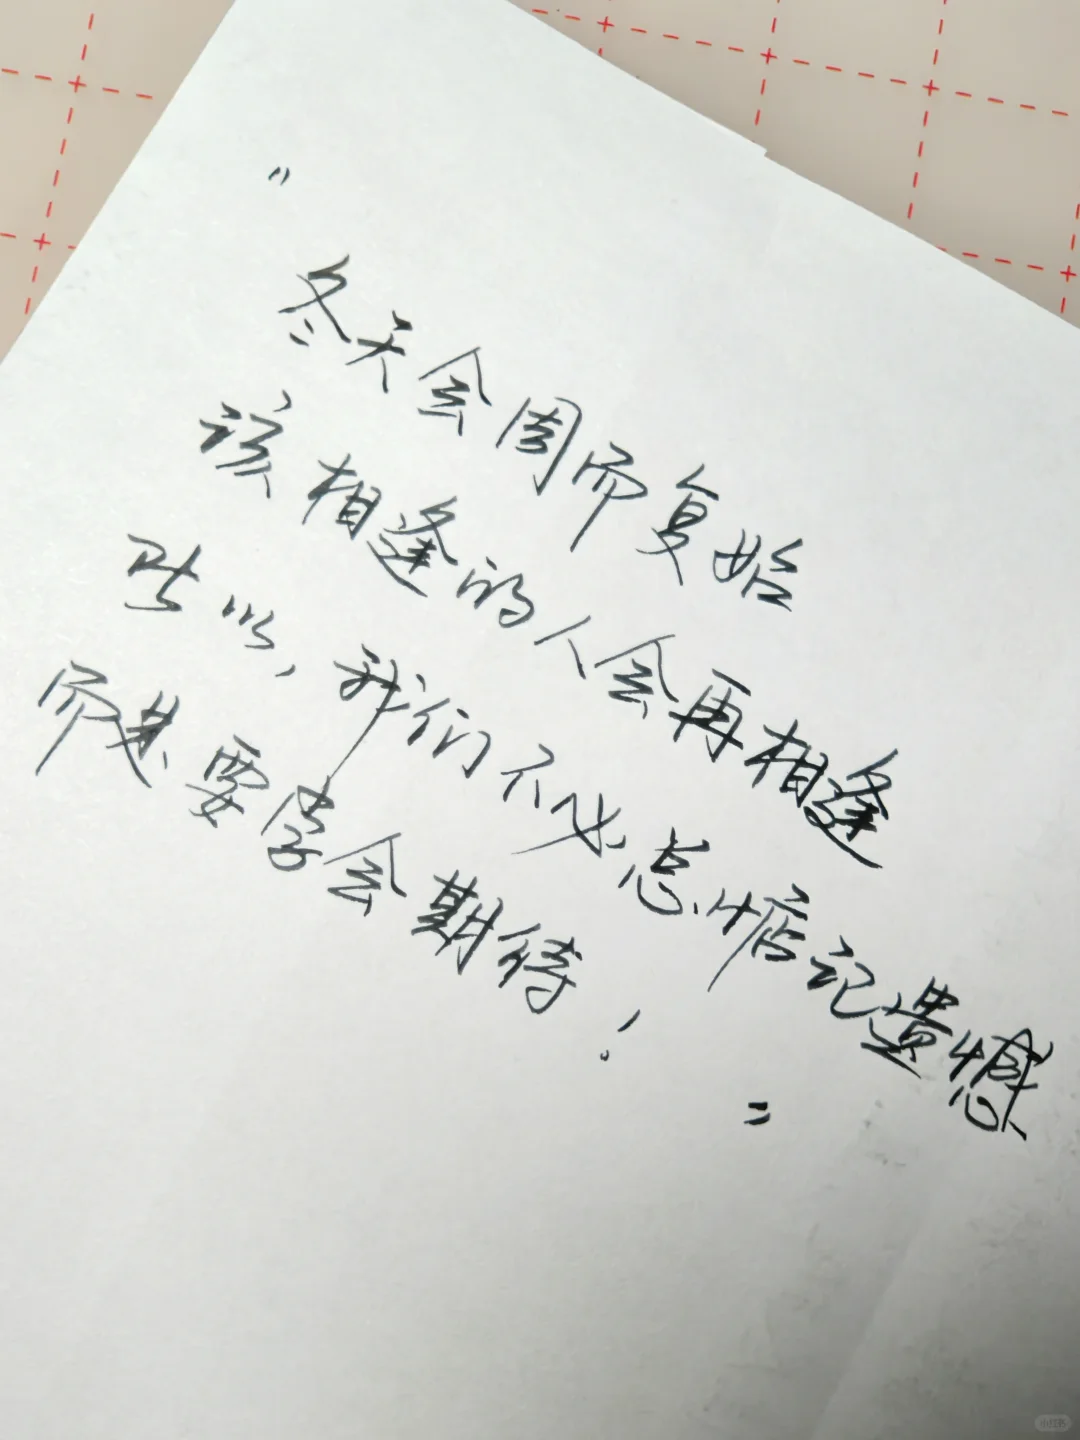 "
冬天会周而复始
该相逢的人会再相逢
所以,我们不必总惦记遗憾
而是要学会期待!
"
小红书